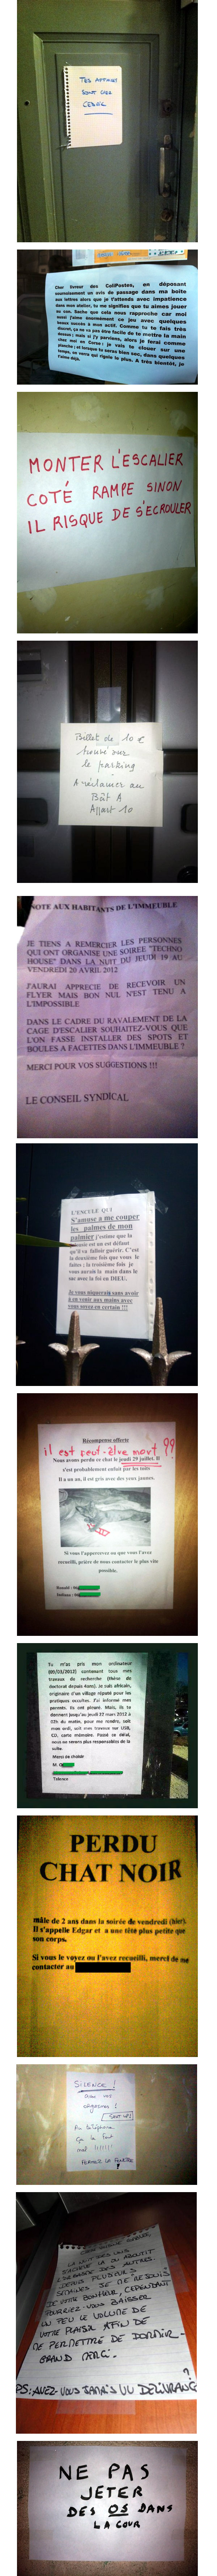 TES APPMENT
SONT CHEZ
CEDRIC
Cher livreur des ColiPostes, en déposant
sournoisement un avis de passage dans ma boîte
aux lettres alors que je t'attends avec impatience
dans mon atelier, tu me signifies que tu aimes jouer
au con. Sache que cela nous rapproche car moi
aussi j'aime énormément ce jeu avec quelques
beaux succès à mon actif. Comme tu te fais très
discret, ça ne va pas être facile de te mettre la main
dessus ; mais si j'y parviens, alors je ferai comme
chez moi en Corse : je vais te clouer sur une
planche ; et lorsque tu seras bien sec, dans quelques
temps, on verra qui rigole le plus. A très bientôt, je
t'aime déjà.
MONTER L'ESCALIER
COTÉ RAMPE SINON
IL RISQUE DE S'ECROULER
Billet de 10 €
trouvé sur
le parking
-
A réclamer au
Bât A
Appart 10
NOTE AUX HABITANTS DE L'IMMEUBLE
JE TIENS A REMERCIER LES PERSONNES
QUI ONT ORGANISE UNE SOIREE "TECHNO
HOUSE" DANS LA NUIT DU JEUDI 19 AU
VENDREDI 20 AVRIL 2012
J'AURAI APPRECIE DE RECEVOIR UN
FLYER MAIS BON NUL N'EST TENU A
L'IMPOSSIBLE
DANS LE CADRE DU RAVALEMENT DE LA
CAGE D'ESCALIER SOUHAITEZ-VOUS QUE
L'ON FASSE INSTALLER DES SPOTS ET
BOULES A FACETTES DANS L'IMMEUBLE ?
MERCI POUR VOS SUGGESTIONS !!!
LE CONSEIL SYNDICAL
L'ENCULE QUI
S'amuse a me couper
les palmes de mon
palmier j'estime que la
est un est défaut
qu'il va falloir guérir. C'est
la deuxième fois que vous le
faites ; la troisième fois je
vous aurais la main dans le
sac avec la foi en DIEU.
Je vous niquerais sans avoir
à en venir aux mains avec
vous soyez-en certain !!!
Récompense offerte
il est peut-être mort ??
Nous avons perdu ce chat le jeudi 29 juillet. Il
s'est probablement enfui par les toits
Il a un an, il est gris avec des yeux jaunes.
Si vous l'apercevez ou que vous l'avez
recueilli, prière de nous contacter le plus vite
possible.
Tu m'as pris mon ordinateur
(09/03/2012) contenant tous mes
travaux de recherche (thèse de
doctorat depuis 6ans). Je suis africain,
originaire d'un village réputé pour les
pratiques occultes. J'ai informé mes
parents. Ils ont pleuré. Mais, ils te
donnent jusqu'au jeudi 17 mars 2012 à
02h du matin, pour me rendre, soit
mon ordi, soit mes travaux sur USB,
CD, carte mémoire. Passé ce délai,
nous ne serons plus responsables de la
suite.
Merci de choisir
M. O
Talence
PERDU
CHAT NOIR
mâle de 2 ans dans la soirée de vendredi (hier).
Il s'appelle Edgar et a une tête plus petite que
son corps.
Si vous le voyez ou l'avez recueilli, merci de me
contacter au
SILENCE !
dans vos
orgasmes !
SVP !
Au téléphone
ça la fout
mal !!!!!!!
FERMEZ LA FENÊTRE
LA NUIT VERS
DERANGE LA OU ABOUTIT
CELLE DES AUTRES.
DEPUIS PLUSIEURS
SEMAINES JE ME REJOUIS
DE VOTRE BONHEUR, CEPENDANT
POURRIEZ-VOUS BAISSER
UN PEU LE VOLUME DE
VOTRE PLAISIR AFIN DE
ME PERMETTRE DE DORMIR-
GRAND MERCI.
PS: AVEZ-VOUS JAMAIS VU DELIVRANCE ?
NE PAS
JETER
DES OS DANS
LA COUR